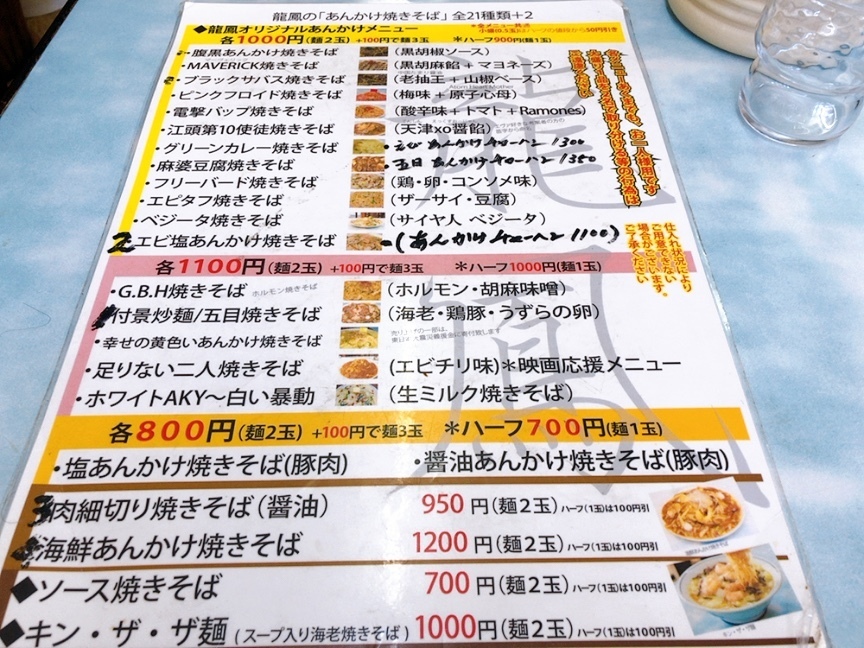 龍鳳の「あんかけ焼きそば」全21種類+2
◆龍鳳オリジナルあんかけメニュー
各1000円(麺2玉) +100円で麺3玉 *ハーフ900円(麺1玉)
・腹黒あんかけ焼きそば (黒胡椒ソース)
・MAVERICK焼きそば (黒胡麻餡+マヨネーズ)
・ブラックサバス焼きそば (老抽王+山椒ベース)
・ピンクフロイド焼きそば (梅味+原子心母)
Atom Heart Mother
・電撃バップ焼きそば (酸辛味+トマト+Ramones)
・江頭第10使徒焼きそば (天津xo醤餡)
・グリーンカレー焼きそば ・えびあんかけチャーハン 1300
・麻婆豆腐焼きそば ・五目あんかけチャーハン 1350
・フリーバード焼きそば (鶏・卵・コンソメ味)
・エピタフ焼きそば (ザーサイ・豆腐)
・ベジータ焼きそば (サイヤ人 ベジータ)
エビ塩あんかけ焼きそば ・(あんかけチャーハン 1100)
全メニューあくまでも、お一人様用です
大盛り焼きそば等で取り分ける等の行為は
ご遠慮ください
仕入れ状況により
ご用意できない
場合がございます。
ご了承ください
各1100円(麺2玉) +100円で麺3玉 *ハーフ1000円(麺1玉)
・G.B.H焼きそば ホルモン焼きそば (ホルモン・胡麻味噌)
付景炒麺/五目焼きそば (海老・鶏豚・うずらの卵)
・幸せの黄色いあんかけ焼きそば
・足りない二人焼きそば (エビチリ味)*映画応援メニュー
・ホワイトAKY〜白い暴動 (生ミルク焼きそば)
各800円(麺2玉) +100円で麺3玉 *ハーフ700円(麺1玉)
・塩あんかけ焼きそば(豚肉) ・醤油あんかけ焼きそば(豚肉)
肉細切り焼きそば(醤油) 950円(麺2玉)ハーフ(1玉)は100円引
海鮮あんかけ焼きそば 1200円(麺2玉)ハーフ(1玉)は100円引
◆ソース焼きそば 700円(麺2玉)ハーフ(1玉)は100円引
◆キン・ザ・ザ麺(スープ入り海老焼きそば)1000円(麺2玉)ハーフ(1玉)は100円引
キン・ザ・ザ麺
龍鳳